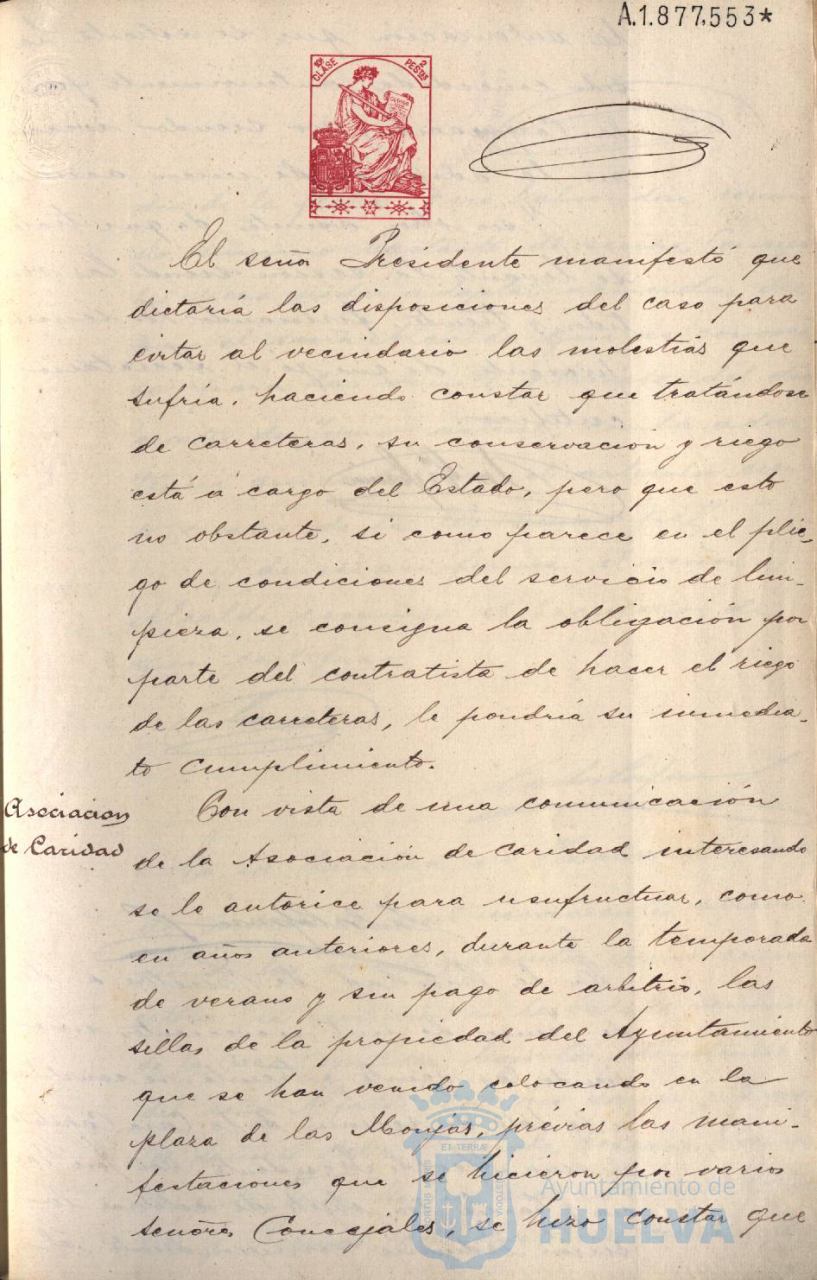 A.1.877.553*
10ª CLASE
2 PESTAS
El señor Presidente manifestó que
dictaría las disposiciones del caso para
evitar al vecindario las molestias que
sufría, haciendo constar que tratándose
de carreteras, su conservación y riego
está á cargo del Estado, pero que esto
no obstante, si como parece en el plie-
go de condiciones del servicio de lim-
pieza, se consigna la obligación por
parte del contratista de hacer el riego
de las carreteras, le pondría su inmedia-
to cumplimiento.
Asociacion
de Caridad
Con vista de una comunicación
de la Asociación de Caridad interesando
se le autorice para usufructuar, como
en años anteriores, durante la temporada
de verano y sin pago de arbitrio, las
sillas de la propiedad del Ayuntamiento
que se han venido colocando en la
plaza de las Monjas, prévias las mani-
festaciones que se hicieron por varios
señores Concejales, se hizo constar que
Ayuntamiento de
HUELVA